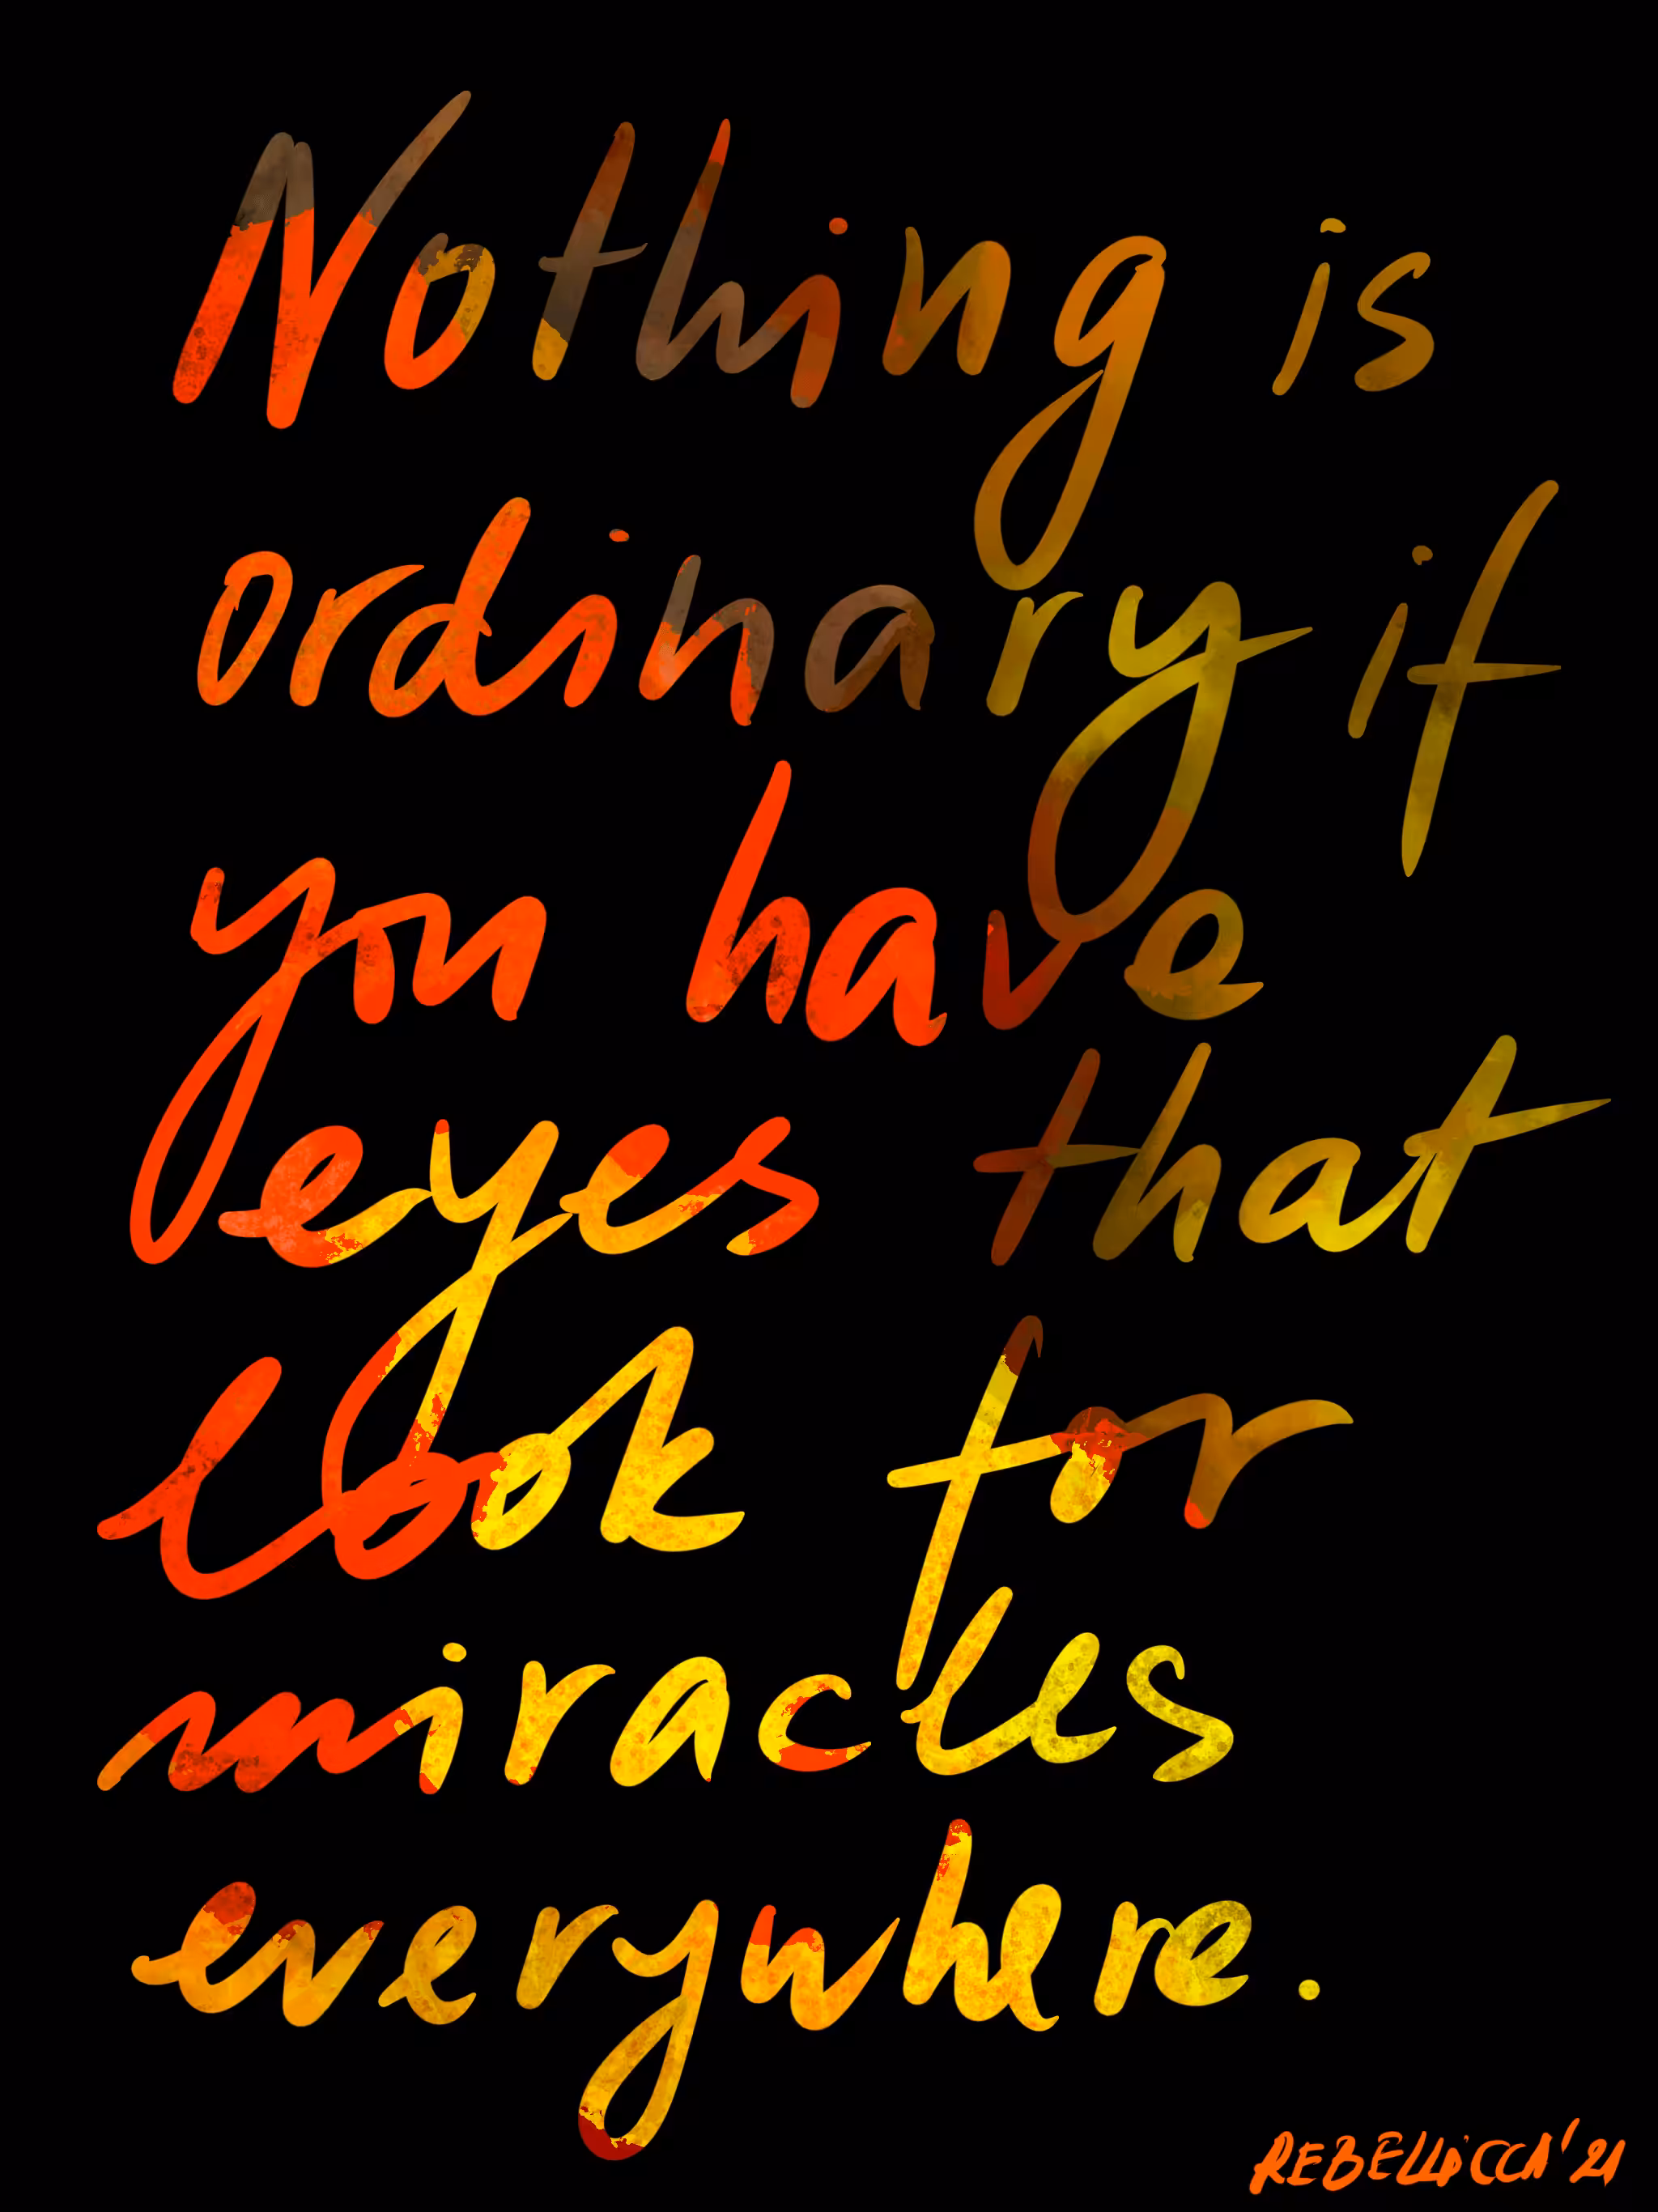 Nothing is
ordinary if
you have
eyes that
look for
miracles
everywhere.
REBELLICCA'21